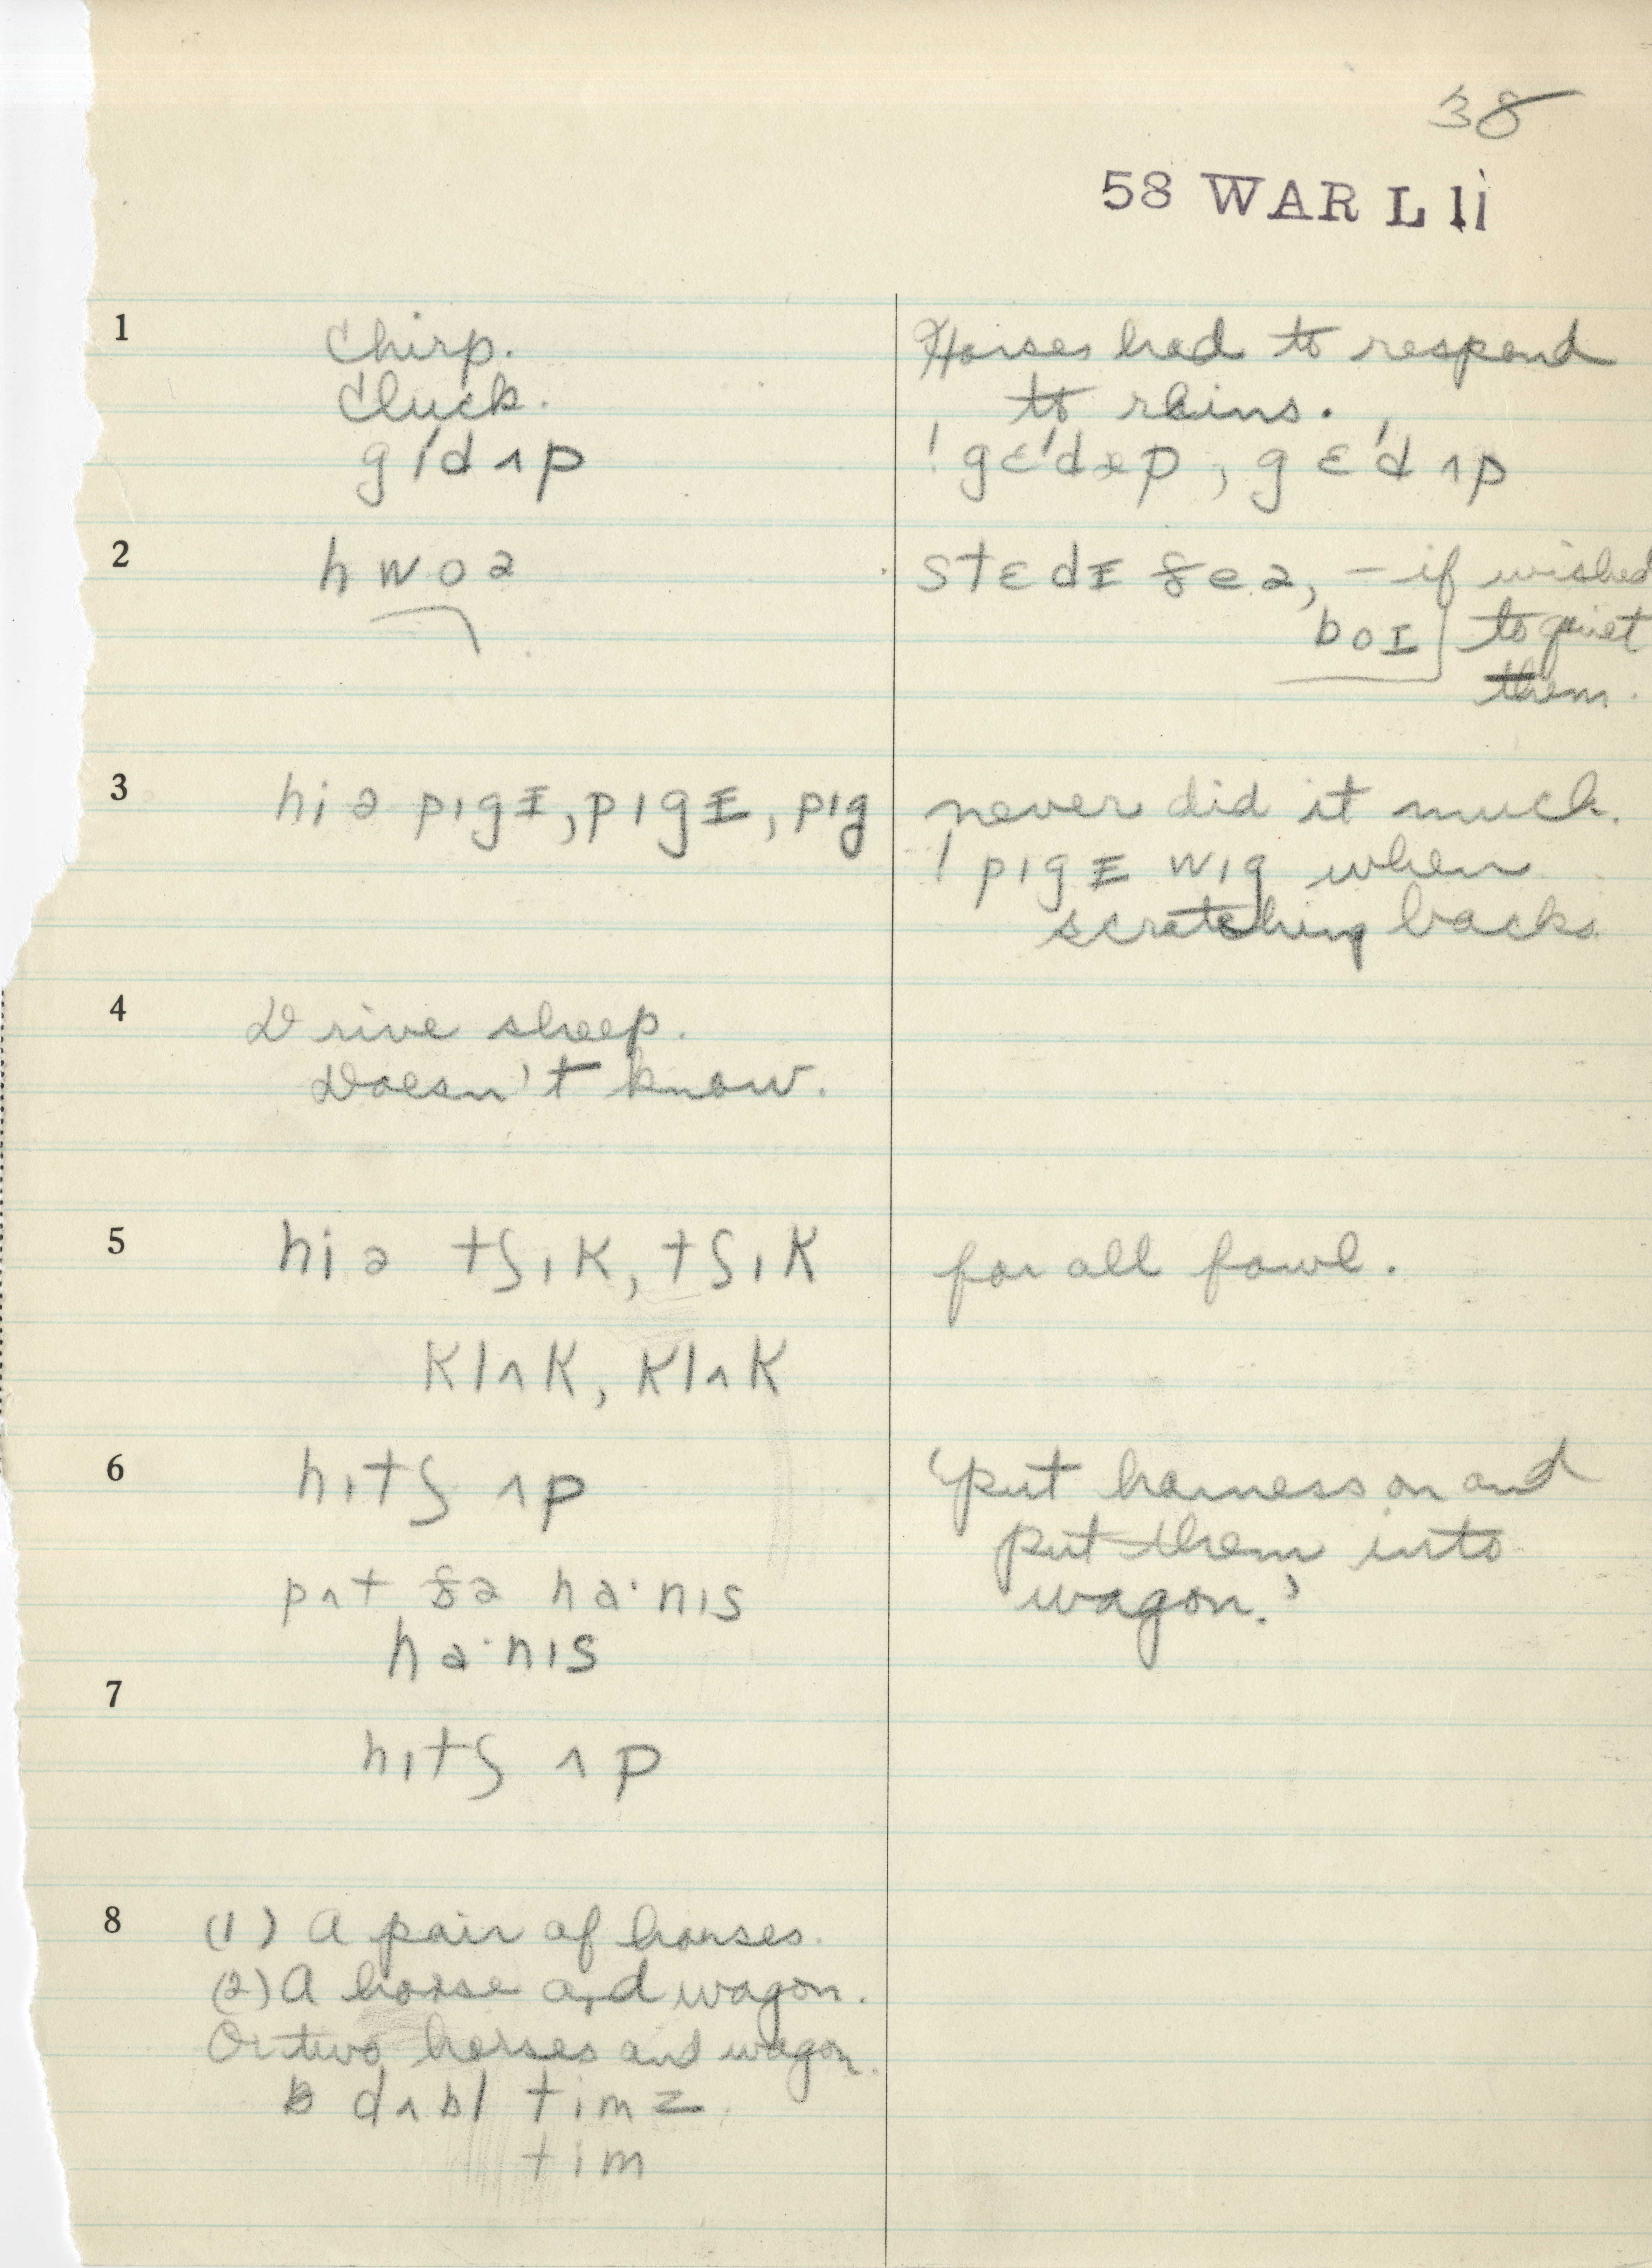 38
58 WAR L 1i
1 Chirp. Horses had to respond
Cluck. to reins.
gɪ́dʌp ! gɛ́dəp, gɛ́dʌp
2 hwoə stɛdɪ ðeə, – if wished
boɪ to quiet
them.
3 hiə pɪgɪ, pɪgɪ, pɪg never did it much.
! pɪgɪ wɪg when
scratching backs.
4 Drive sheep.
Doesn't know.
5 hiə tʃɪk, tʃɪk for all fowl.
klʌk, klʌk
6 hɪtʃ ʌp 'put harness on and
put them into
pʌt ðə ha·nɪs wagon.'
ha·nɪs
7
hɪtʃ ʌp
8 (1) A pair of horses.
(2) A horse and wagon.
Or two horses and wagon.
dʌbl timz
tim